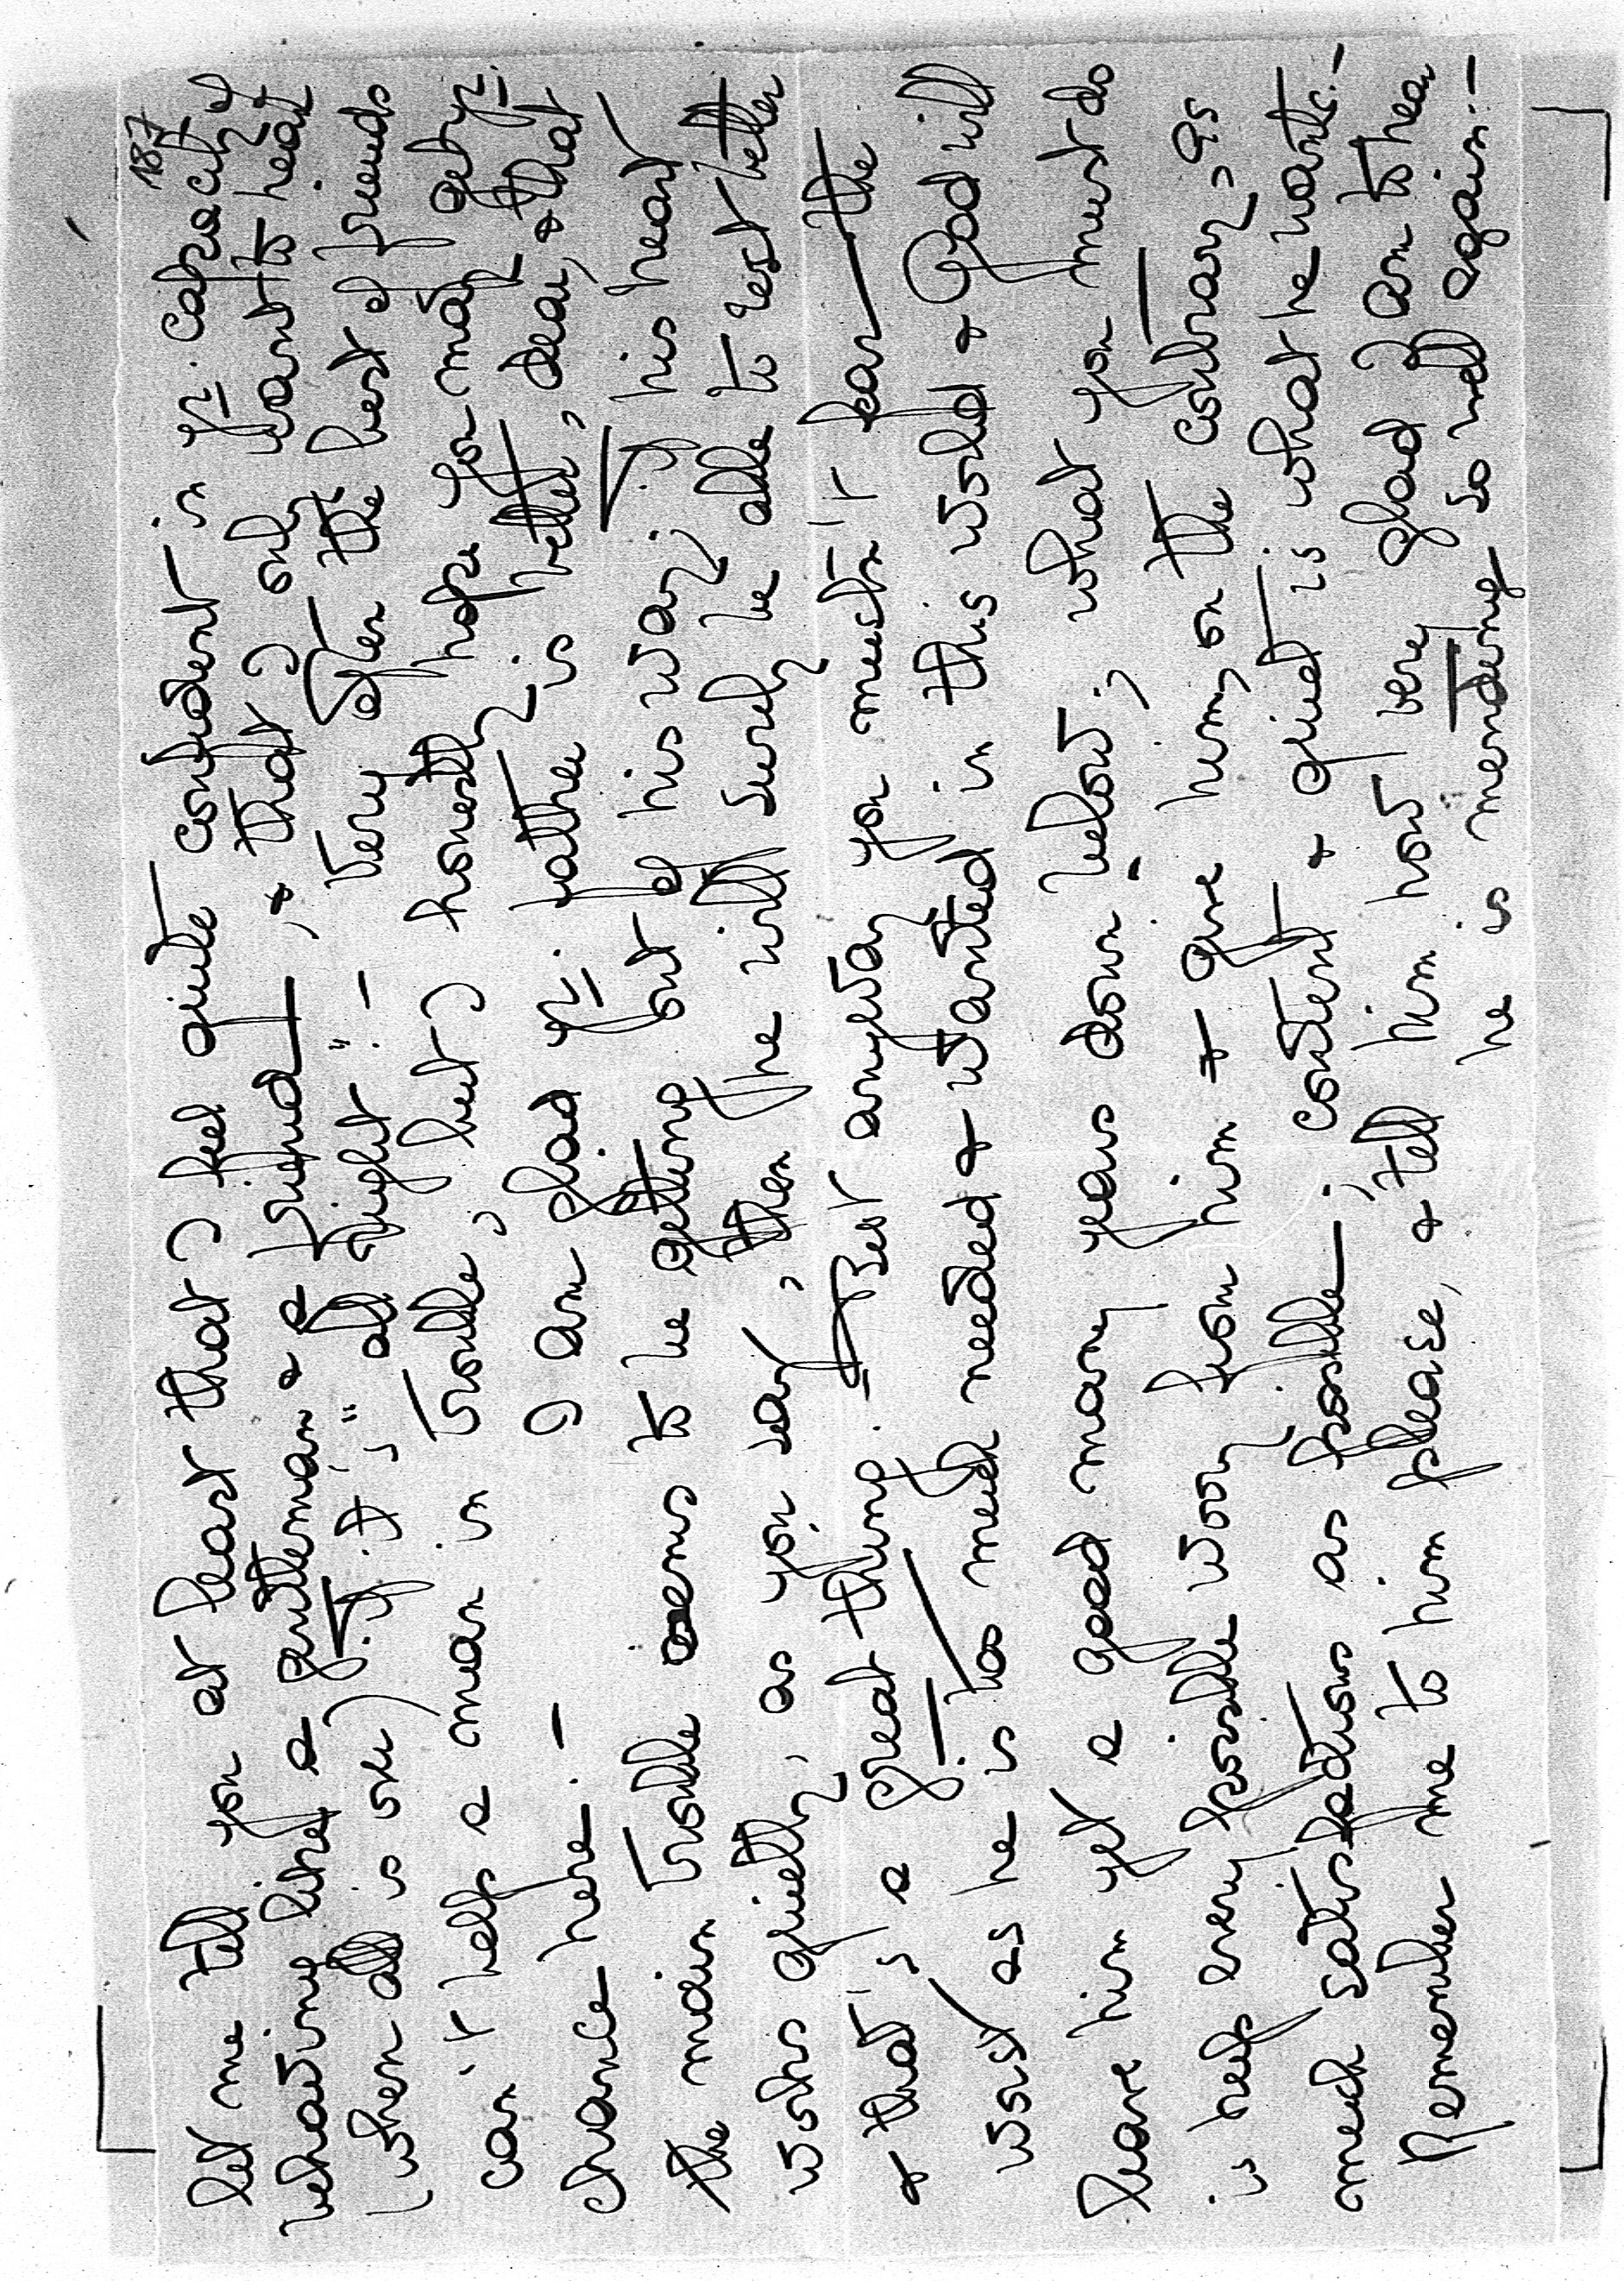 187
Let me tell you at least that I feel quite confident in yr. capacity of
behaving like a gentleman & a friend —, & that I only want to hear
(when all is over) if it's "all right"! — Very often the best of friends
can't help a man in trouble, but I honestly hope you may get yr.
chance here. — I am glad yr. father is better, dear, & that
the main trouble seems to be getting out of his way; if his heart
works quietly, as you say, then he will surely be able to rest better
& that's a great thing. — But anyway you mustn't fear the
worst as he is too much needed & wanted in this world & God will
leave him yet a good many years down below; what you must do
is keep every possible worry from him & give him, on the contrary, as
much satisfaction as possible —; content & quiet is what he wants. —
Remember me to him please, & tell him how very glad I am to hear
he is mending so well again. —